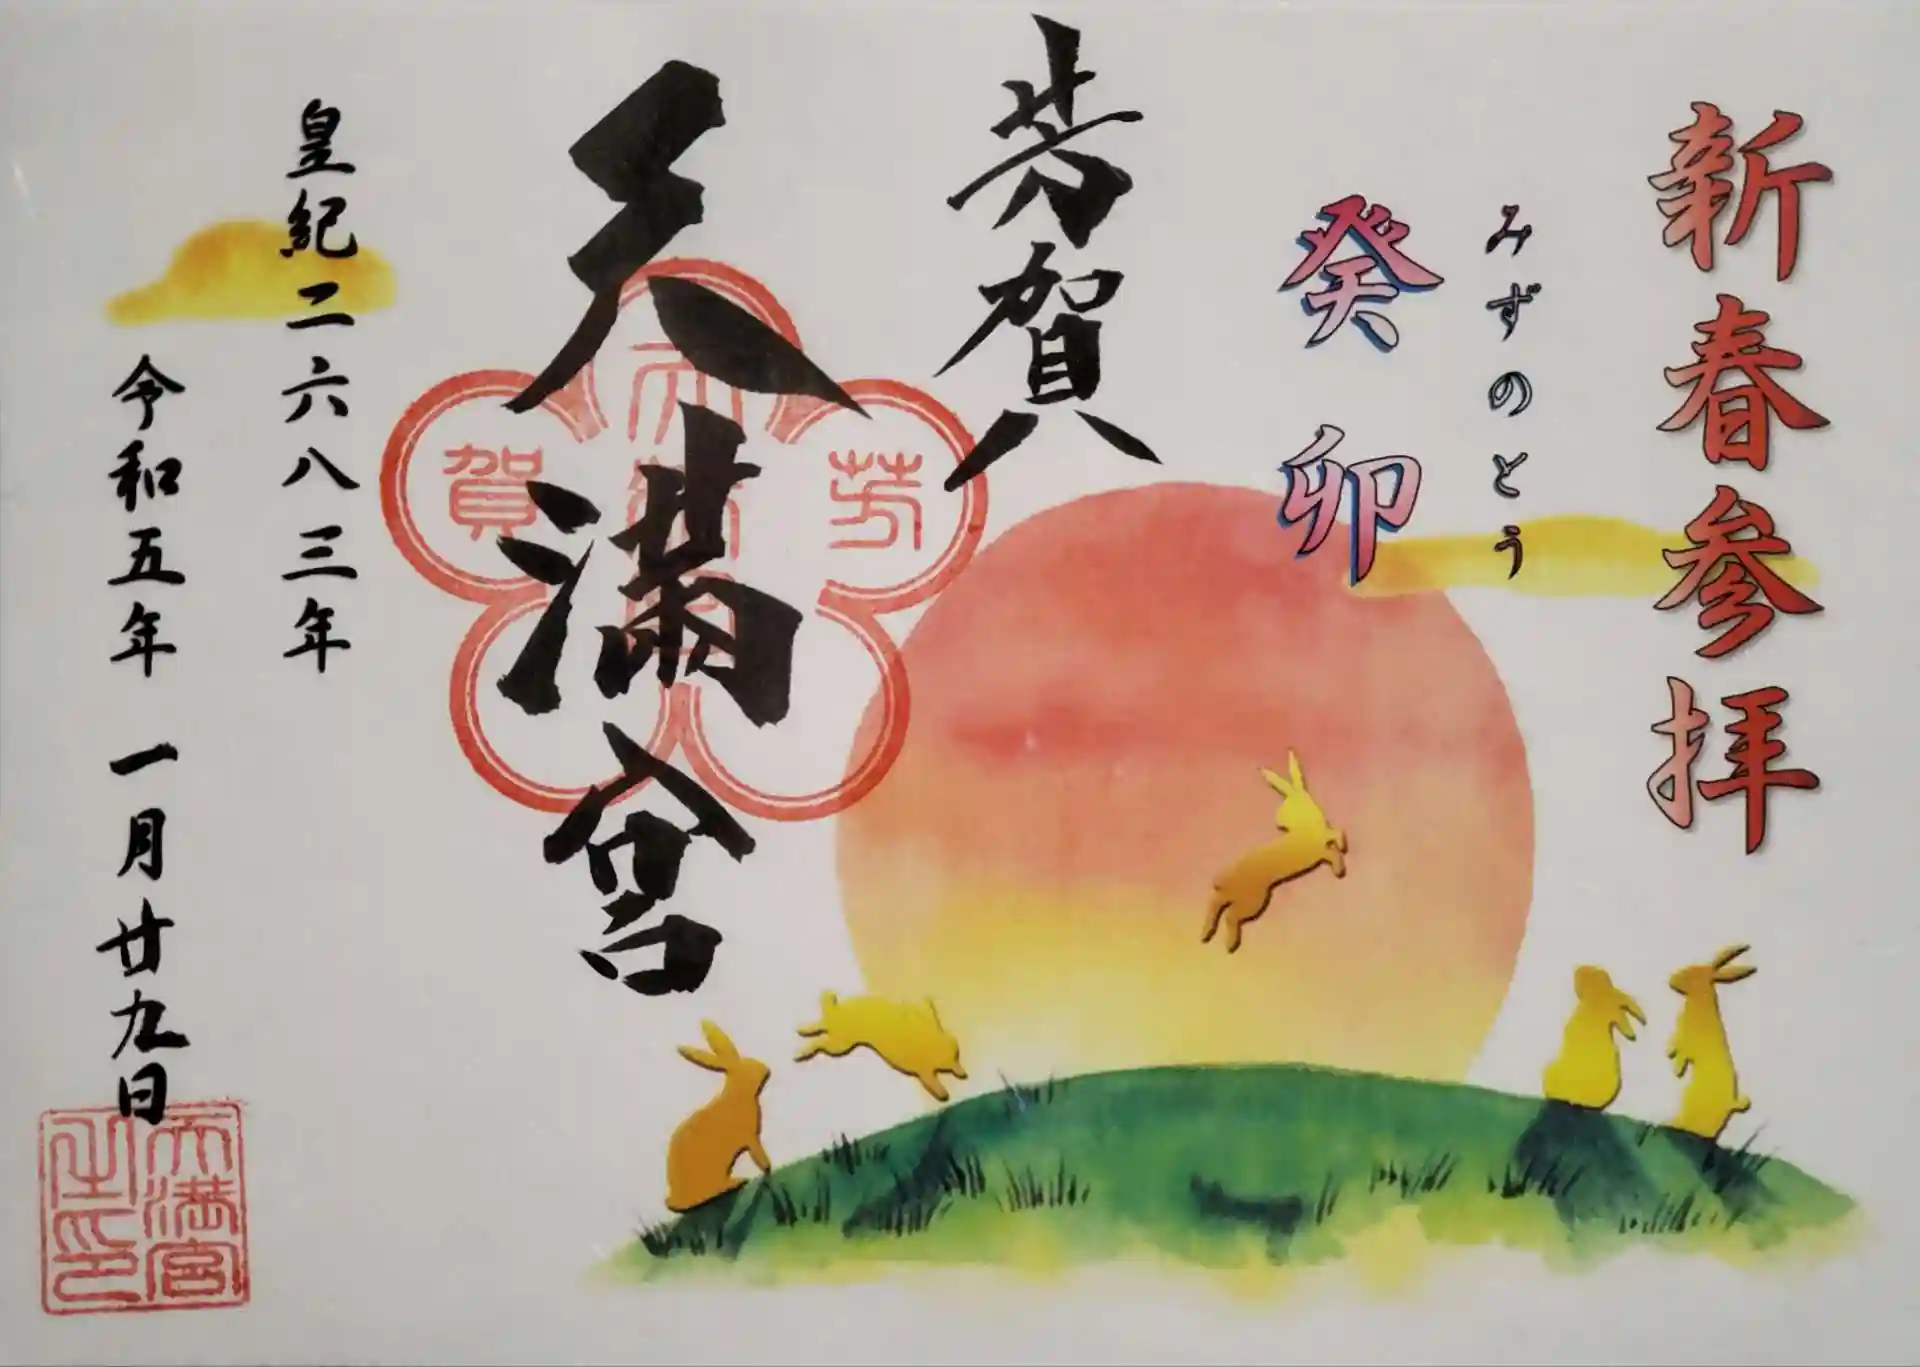 新春参拝
みずのとう
癸卯
芳賀
天満宮
芳
天満宮
賀
皇紀二六八三年
令和五年 一月廿九日
天満宮
之印